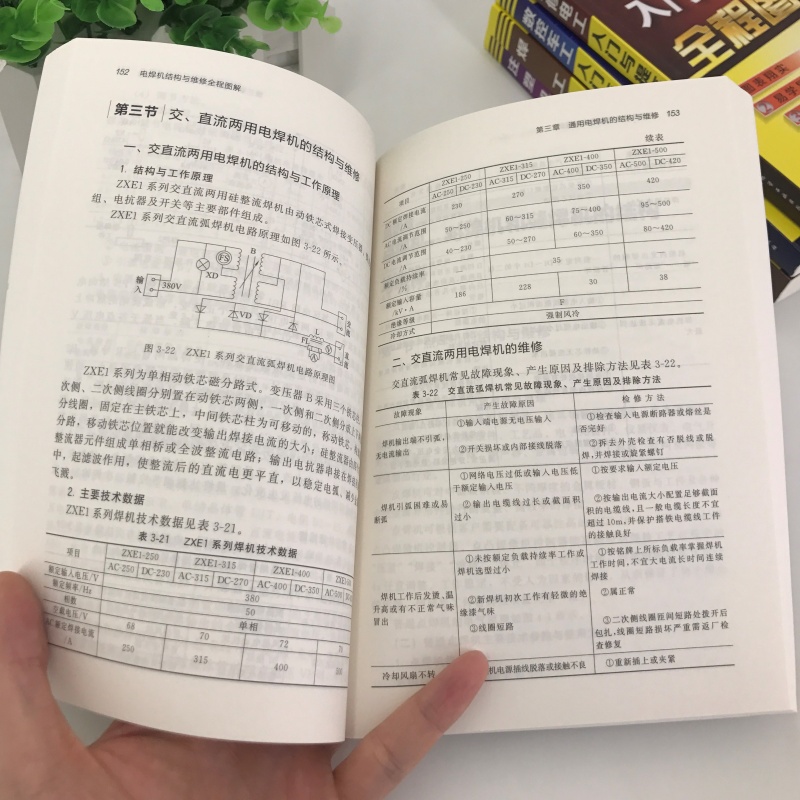 152 电焊机结构与维修全程图解
第三节 交、直流两用电焊机的结构与维修
一、交直流两用电焊机的结构与工作原理
1. 结构与工作原理
ZXE1 系列交直流两用硅整流焊机由动铁芯式焊接变压器
组、电抗器及开关等主要部件组成。
ZXE1 系列交直流弧焊机电路原理如图 3-22 所示、
FS
B
XD
输入
380V
VD
L
FL
A
交流
直流
图 3-22 ZXE1 系列交直流弧焊机电路原理图
ZXE1 系列为单相动铁芯磁分路式。变压器 B 采用三个铁芯柱
次侧、二次侧线圈分别置在动铁芯两侧，一次侧和二次侧分成
分线圈，固定在主铁芯上，中间铁芯柱为可移动的，称动铁芯，
分路，移动铁芯位置就能改变输出焊接电流的大小；硅整流器由
整流器元件组成单相桥或全波整流电路；输出电抗器串接在焊接
中，起滤波作用，使整流后的直流电更平直，以稳定电弧、减少
飞溅。
2. 主要技术数据
ZXE1 系列焊机技术数据见表 3-21。
表 3-21 ZXE1 系列焊机技术数据
项目 ZXE1-250 ZXE1-315 ZXE1-400
AC-250 DC-230 AC-315 DC-270 AC-400 DC-350 AC-500
额定输入电压/V 380
额定频率/Hz 50
相数 单相
空载电压/V 68 70 72
AC 额定焊接电流/A 250 315 400
第三章 通用电焊机的结构与维修 153
续表
项目 ZXE1-250 ZXE1-315 ZXE1-400 ZXE1-500
AC-250 DC-230 AC-315 DC-270 AC-400 DC-350 AC-500 DC-420
DC 额定焊接电流/A 230 270 350 420
AC 电流调节范围/A 50～250 60～315 75～400 95～500
DC 电流调节范围/A 40～230 50～270 60～350 80～420
额定负载持续率/% 35
额定输入容量/kV·A 186 228 30 38
绝缘等级 F
冷却方式 强制风冷
二、交直流两用电焊机的维修
交直流弧焊机常见故障现象、产生原因及排除方法见表 3-22。
表 3-22 交直流弧焊机常见故障现象、产生原因及排除方法
故障现象 产生故障原因 检修方法
焊机输出端不引弧，
无电流输出
①输入端电源无电压输入
②开关损坏或内部接线脱落
①检查输入电源断路器或熔丝是
否完好
②拆去外壳检查有否脱线或脱
焊，并焊接或旋紧螺钉
焊机引弧困难或易
断弧
①网络电压过低或输入电压低
于额定输入电压
②输出电缆线过长或截面积
过小
①按要求输入额定电压
②按输出电流大小配置足够截面
积的电缆线，且一般电缆长度不宜
超过 10m，并保护搭铁电缆线工件
的接触良好
焊机工作后发烫、温
升高或有不正常气味
冒出
①未按额定负载持续率工作或
焊机选型过小
②新焊机初次工作有轻微的绝
缘漆气味
③线圈短路
①按铭牌上所标负载率掌握焊机
工作时间，不宜大电流长时间连续
焊接
②属正常
③二次侧线圈匝间短路处拨开后
包扎，线圈短路损坏严重需返厂检
查修复
冷却风扇不转
机电源插线脱落或接触不良
①重新插上或夹紧
数控车工
入门与
全程图